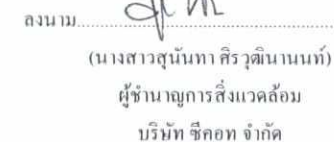 ลงนาม
(นางสาวสุนันทา ศิรวุฒินานนท์)
ผู้ชำนาญการสิ่งแวดล้อม
บริษัท ซีคอท จำกัด